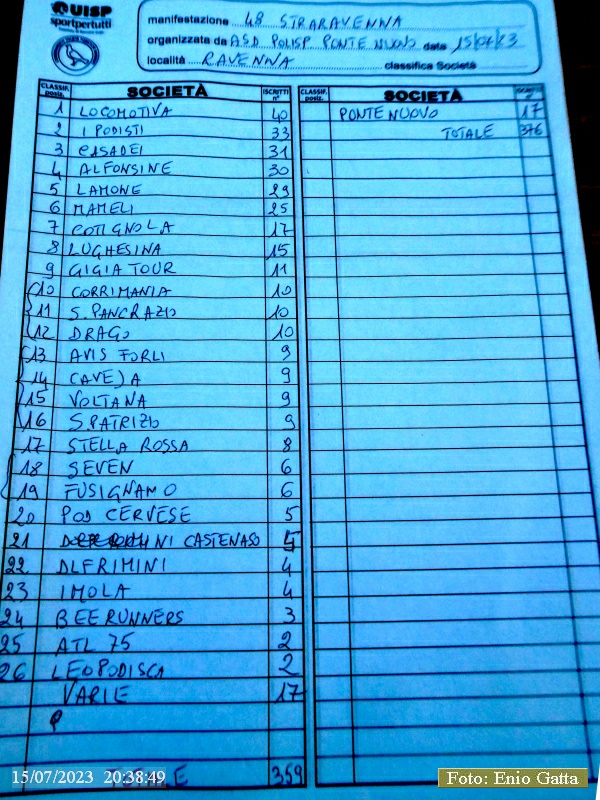 UISP
sportpertutti
manifestazione 48 STRARAVENNA
organizzata da ASD POLISP PONTE NUOVO data 15/07/23
località RAVENNA classifica Società
CLASSIF. posiz. SOCIETÀ ISCRITTI n°
1 LOCOMOTIVA 40
2 I PODISTI 33
3 CASADEI 31
4 ALFONSINE 30
5 LAMONE 29
6 MAMELI 25
7 COTIGNOLA 17
8 LUGHESINA 15
9 GIGIA TOUR 11
10 CORRIMANIA 10
11 S. PANCRAZIO 10
12 DRAGO 10
13 AVIS FORLI 9
14 CAVEJA 9
15 VOLTANA 9
16 S.PATRIZIO 9
17 STELLA ROSSA 8
18 SEVEN 6
19 FUSIGNANO 6
20 POD CERVESE 5
21 INI CASTENASO
22 DLF RIMINI 4
23 IMOLA 4
24 BEE RUNNERS 3
25 ATL 75 2
26 LEOPODISCA 2
VARIE 17
TOTALE 359
CLASSIF. posiz. SOCIETÀ ISCRITTI n°
PONTE NUOVO 17
TOTALE 376
15/07/2023 20:38:49
Foto: Enio Gatta